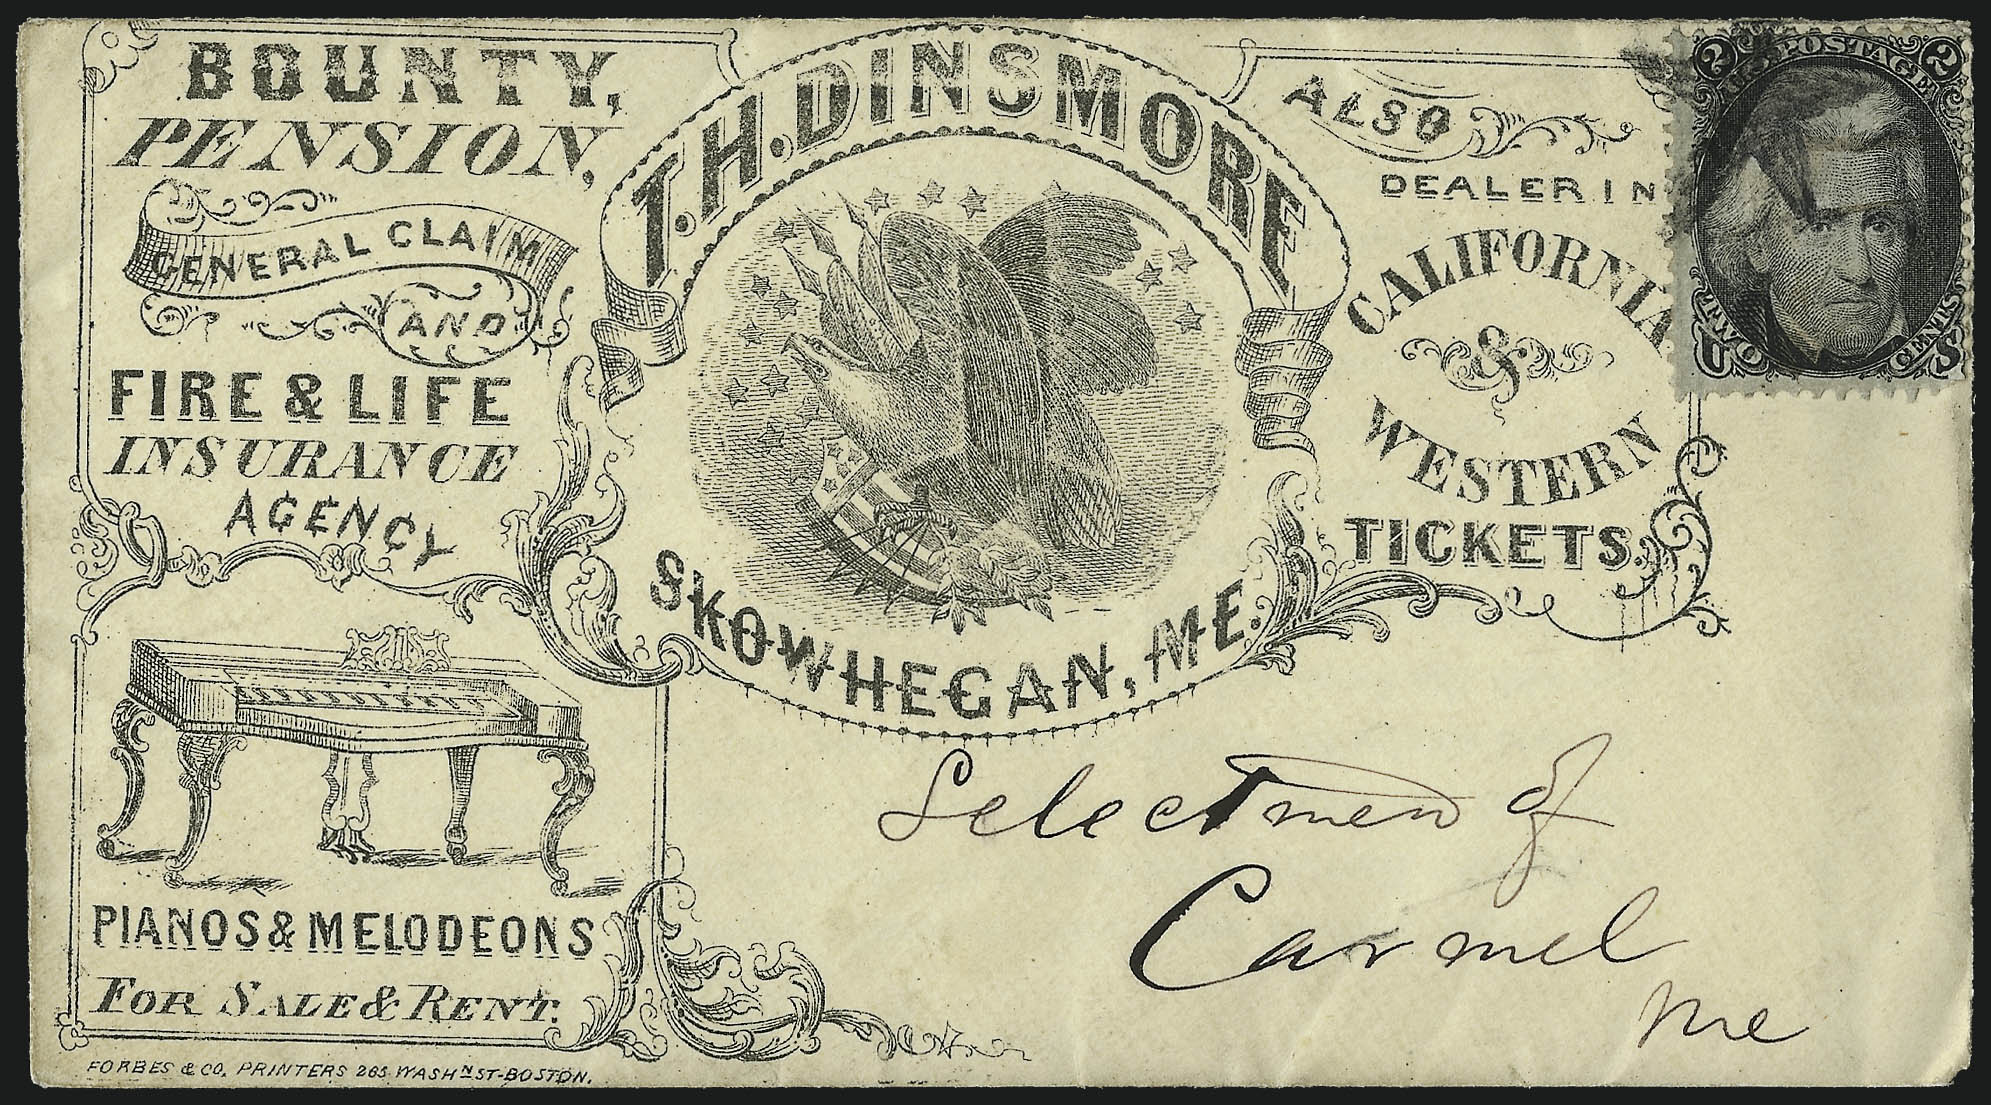 BOUNTY,
PENSION,
GENERAL CLAIM
AND
FIRE & LIFE
INSURANCE
AGENCY
T.H. DINSMORE
SKOWHEGAN, ME.
ALSO
DEALER IN
CALIFORNIA
&
WESTERN
TICKETS.
2 U.S. POSTAGE 2
TWO CENTS
U S
PIANOS & MELODEONS
FOR SALE & RENT.
FORBES & CO. PRINTERS 265 WASHN ST-BOSTON.
Selectmen of
Carmel
Me